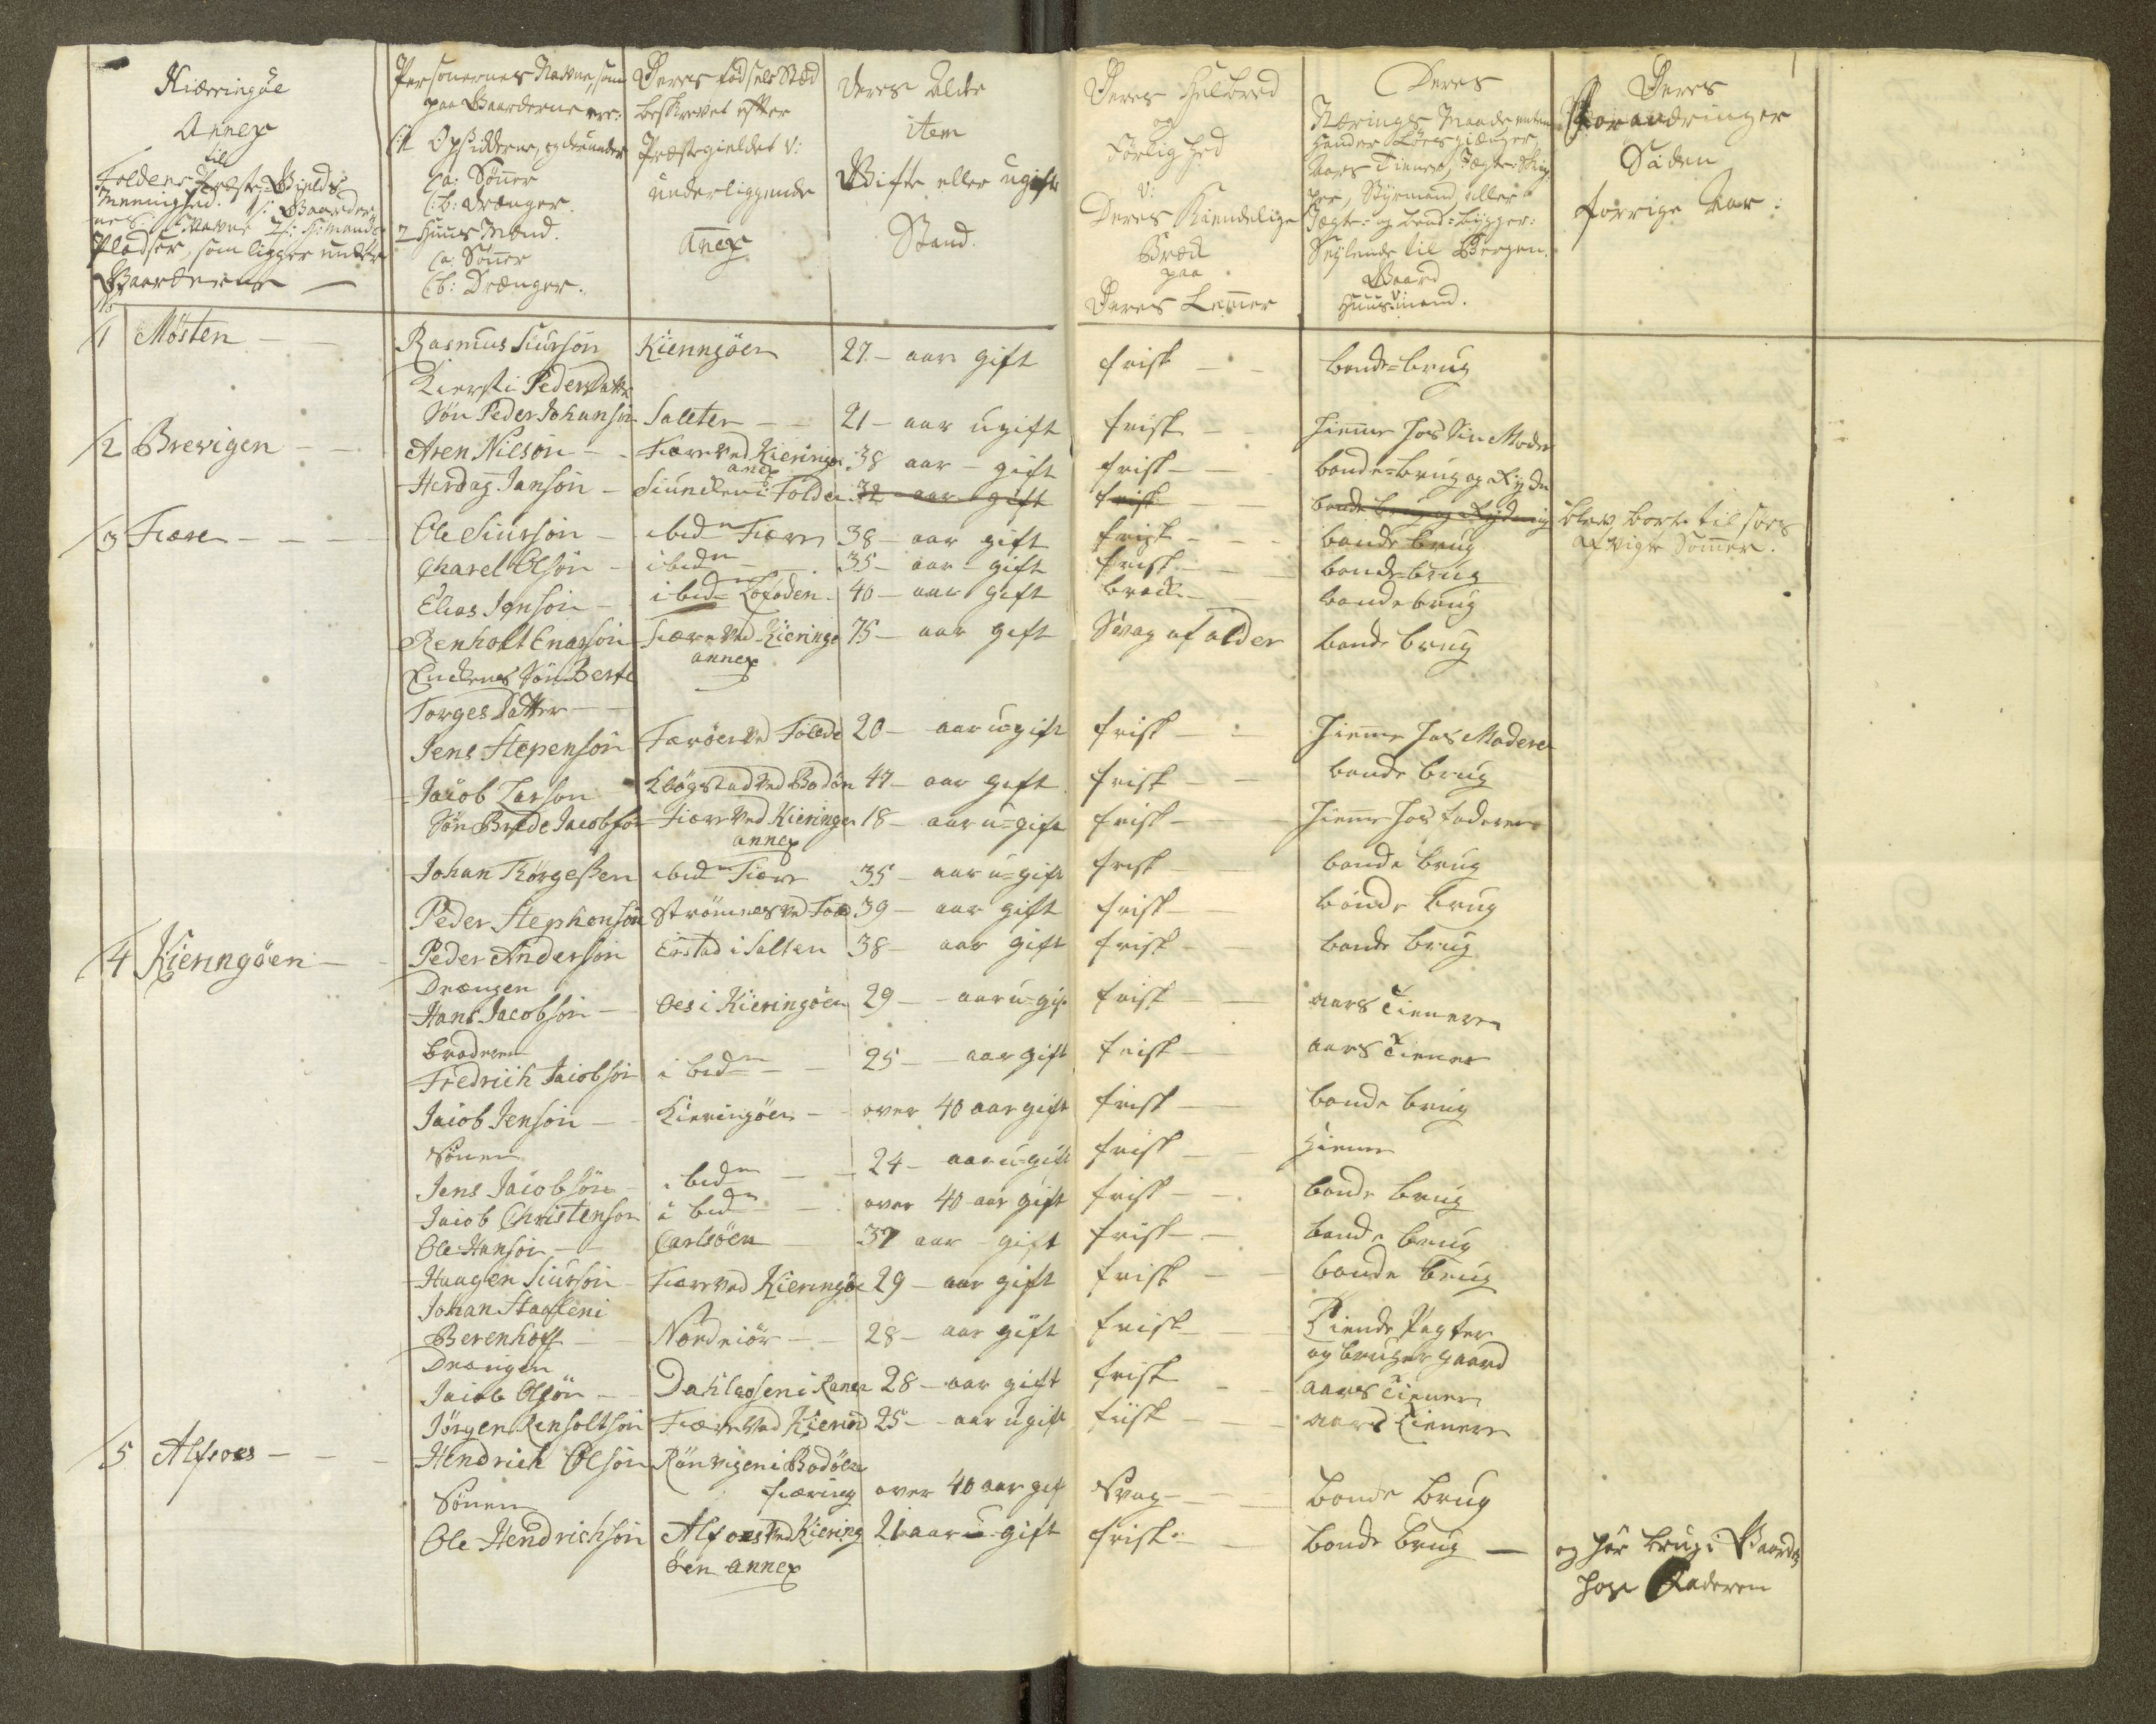 Kiærringøe
Annex
til
Foldens Præste-Gields
Meenighed. 1: Gaarder
nes Navne 2: H: Mands
Pladser, som ligger under
Gaarderne
No
Personernes Navne, som
paa Gaarderne ere:
1 Opsidderne, og derunder
a: Sønner
b: Drænger.
2 Huus Mænd.
a: Sønner
b: Drænger.
Deres fødsels Stæd
beskrevet efter
Præstegieldet v:
underliggende
Anex
Deres Alder
item
Gifte eller ugifte
Stand.
Deres Helbred
og
Førlighed
v:
Deres Kiendelige
Bræk
paa
Deres Lemmer
Deres
Nærings Maade enten
Aars Tiener, Jægte-Skip
per, Styrmand eller
Jægte- og baad-bygger:
Seylende til Bergen.
Gaard
v:
Huusmand.
Deres
Forandringer
Siden
forrige Aar:
1 Møsten — Rasmus Siurson Kienngøen 27 - aar gift frisk — bonde-brug
Kiersti Pedersdatter
Søn Peder Johanson Salten — 21 - aar ugift frisk — hiemme hos Sin Moder
2 Brevigen — Aren Nilson — Fiære ved Kieringøe anex 38 aar - gift frisk — bonde-brug og Rydn
Herdag Janson — i Folden 32 aar gift frisk — bonde brug og Rydning blev borte til søes
afvigte Sommer.
3 Fiære — Ole Siurson — ibidn Fiære 38 - aar gift frisk — bonde brug
Charel Olson — ibidn — 35 - aar - gift frisk — bonde-brug
Elias Jenson — ibidn Lofoden 40 - aar gift brøck — bonde brug
Renholt Enarson Fiære ved Kieringø annex 75 - aar gift Svag af alder bonde brug
Enckens Søn Berte
Torges Datter —
Jens Stepenson Færøen ved Folde 20 - aar u-gift frisk — hiemme hos Moderen
Jacob Larson Kløgstad ved Bodøn 47 - aar gift frisk — bonde brug
Søn Brede Jacobson Fiære ved Kieringøe annex 18 - aar u-gift frisk — hiemme hos faderen
Johan Thørgeßen ibidn Fiære 35 - aar u-gift frisk — bonde brug
Peder Stephenson Strømnes ved Fold 39 - aar gift frisk — bonde brug
4 Kienngøen — Peder Anderson Enstad i Salten 38 - aar gift frisk — bonde brug
Drængen
Hans Jacobson — Oes i Kieringøen 29 - aar u-gift frisk — aars Tienere
Broderen
Fredrich Jacobson ibidn — 25 - aar gift frisk — aars Tiener
Jacob Jenson — Kieringøen — over 40 aar gift frisk — bonde brug
Sønen
Jens Jacobson — ibidn — 24 - aar u-gift frisk — hieme
Jacob Christenson ibidn — over 40 aar gift frisk — bonde brug
Ole Hanson — Carlsøen — 37 aar - gift frisk — bonde brug
Haagen Siurson — Fiære ved Kieringøe 29 - aar gift frisk — bonde brug
Johan Stafleni
Berenhoff — Nordmør — 28 - aar gift frisk — Tiende Pagter
og bruger gaard
Drængen
Jacob Olsøn — Dahlsosen i Ranen 28 - aar gift frisk — aars Tiener
Jørgen Renholtson Fiære ved Kiering 25 - aar u gift friisk — aars Tienere
5 Alfroes — Hendrich Olson Rønvigen i Bodøen
fiæring over 40 aar gift svag — bonde brug
Sønen
Ole Hendrichson Alfoes ved Kiering
øen annex 21 aar u-gift frisk — bonde brug — og hør brug i Gaarden
hos Faderen